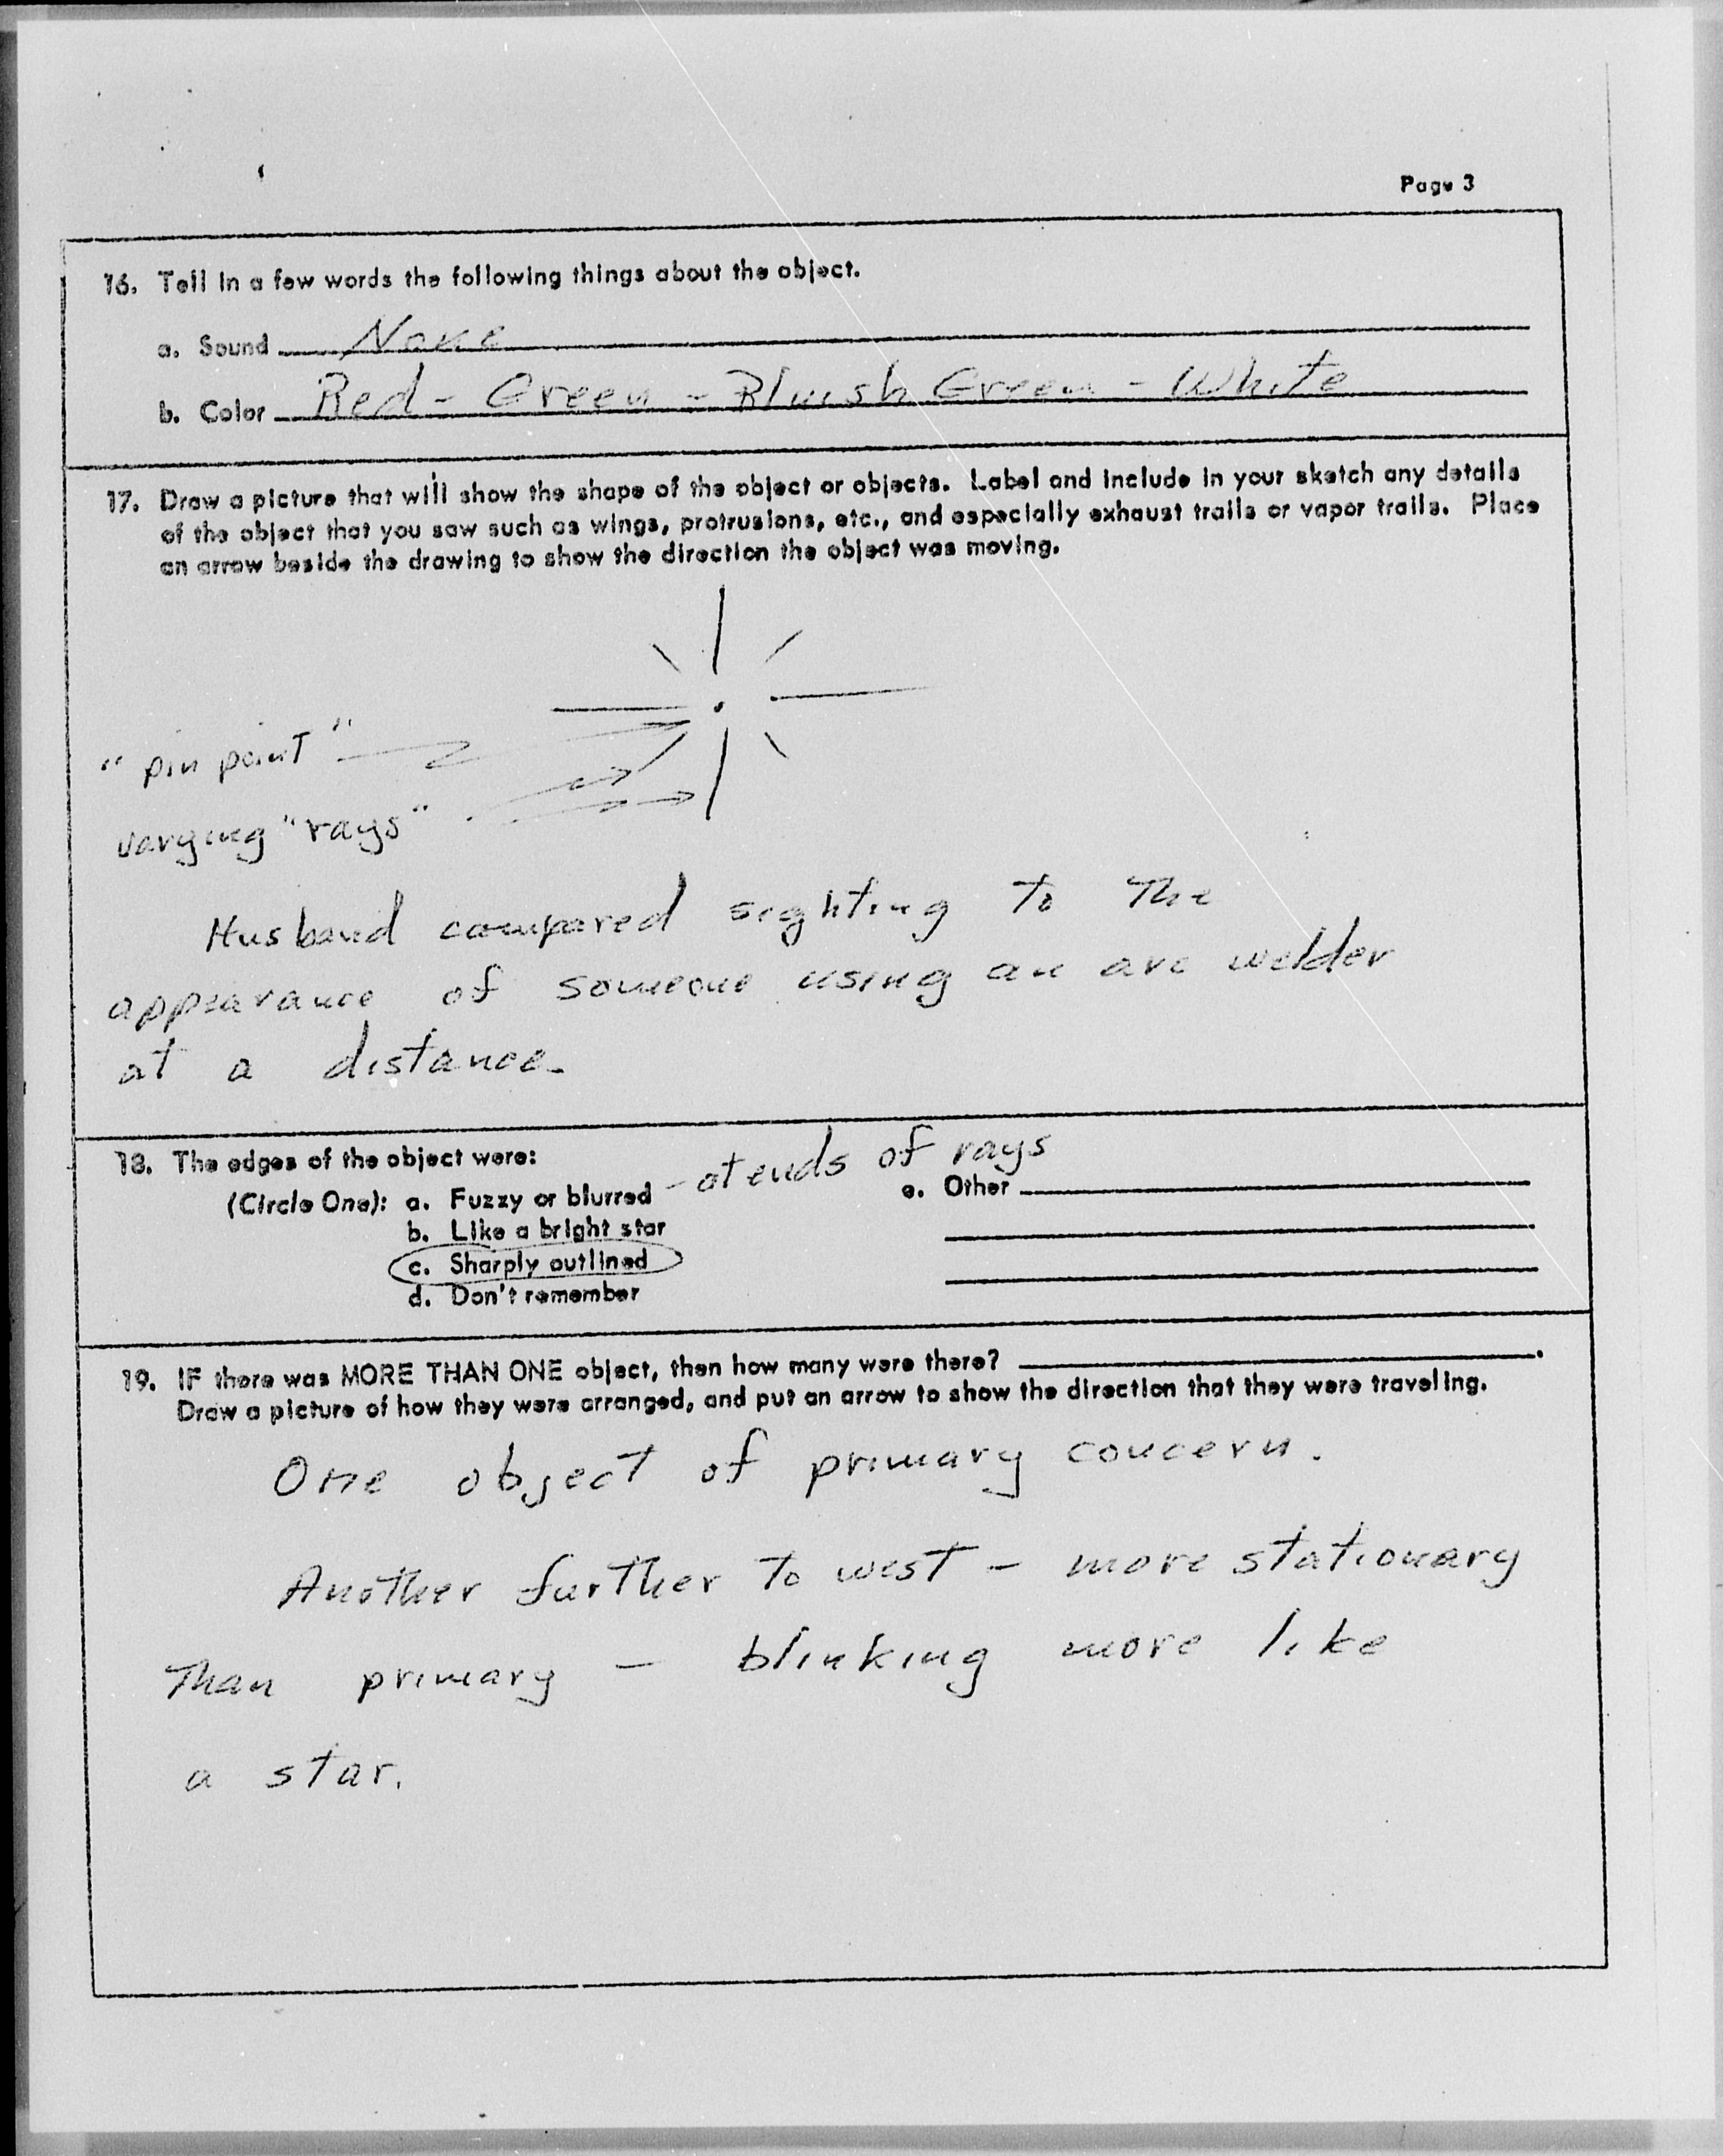 Page 3
16. Tell in a few words the following things about the object.
a. Sound None
b. Color Red - Green - Bluish Green - White
17. Draw a picture that will show the shape of the object or objects. Label and include in your sketch any details
of the object that you saw such as wings, protrusions, etc., and especially exhaust trails or vapor trails. Place
an arrow beside the drawing to show the direction the object was moving.
"pin point"
varying "rays"
Husband compared sighting to the
appearance of someone using an arc welder
at a distance.
18. The edges of the object were:
(Circle One): a. Fuzzy or blurred - at ends of rays
e. Other
b. Like a bright star
c. Sharply outlined
d. Don't remember
19. IF there was MORE THAN ONE object, then how many were there?
Draw a picture of how they were arranged, and put an arrow to show the direction that they were traveling.
One object of primary concern.
Another further to west - more stationary
Than primary - blinking more like
a star.